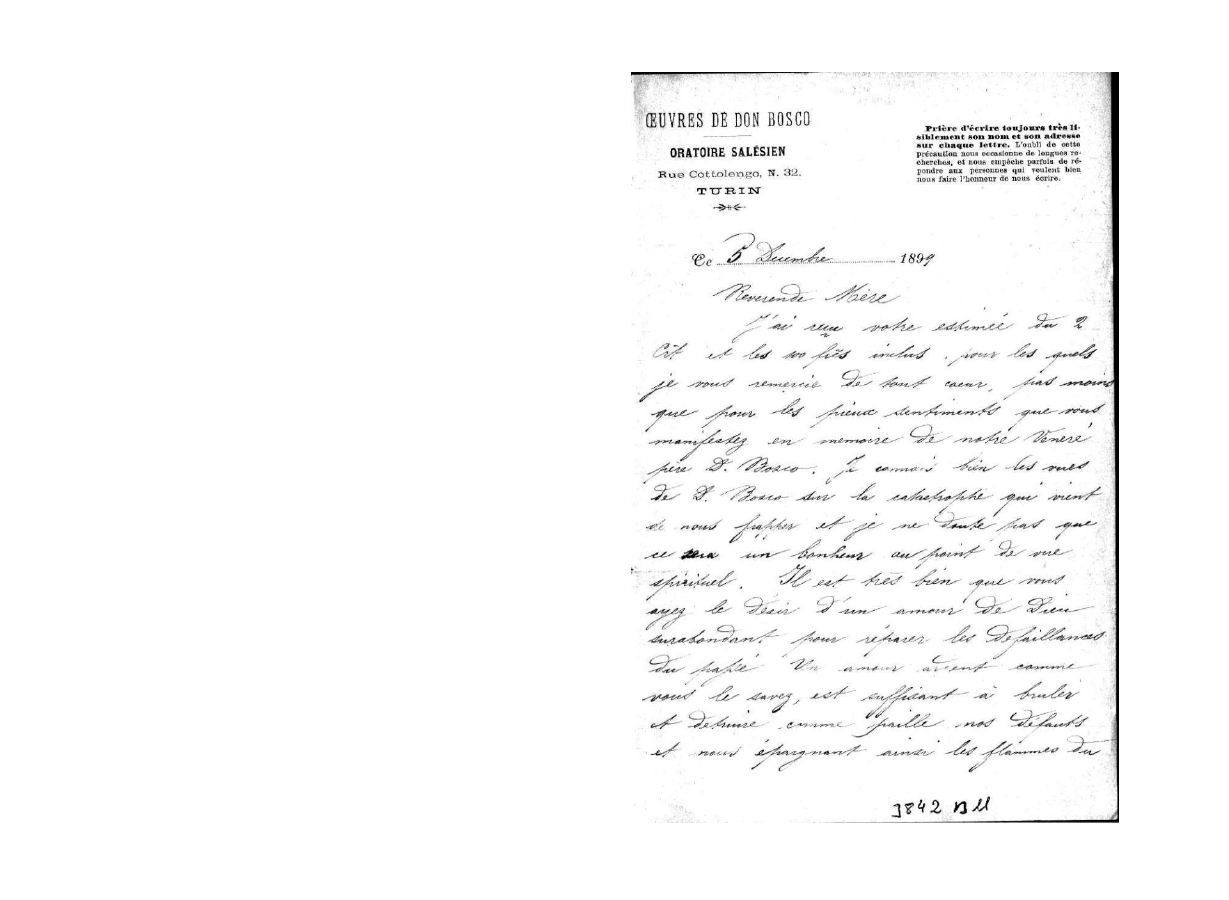 ŒUVRES DE DON BOSCO
ORATOIRE SALÉSIEN
Rue Cottolengo, N. 32.
TURIN
Prière d'écrire toujours très li-
siblement son nom et son adresse
sur chaque lettre. L'oubli de cette
précaution nous occasionne de longues re-
cherches, et nous empêche parfois de ré-
pondre aux personnes qui veulent bien
nous faire l'honneur de nous écrire.
Ce 5 Decembre 1899
Reverende Mère
J'ai reçu votre estimée du 2
Ct et les 100 frcs inclus, pour les quels
je vous remercie de tout coeur, pas moins
que pour les pieux sentiments que vous
manifestez en memoire de notre Veneré
père D. Bosco. Je connais bien les vues
de D. Bosco sur la catastrophe qui vient
de nous frapper et je ne doute pas que
ce sera un bonheur au point de vue
spirituel. Il est très bien que vous
ayez le désir d'un amour de Dieu
surabondant pour réparer les défaillances
du passé Un amour ardent comme
vous le savez, est suffisant à bruler
et detruire comme paille nos défauts
et nous épargnant ainsi les flammes du
3842 B M